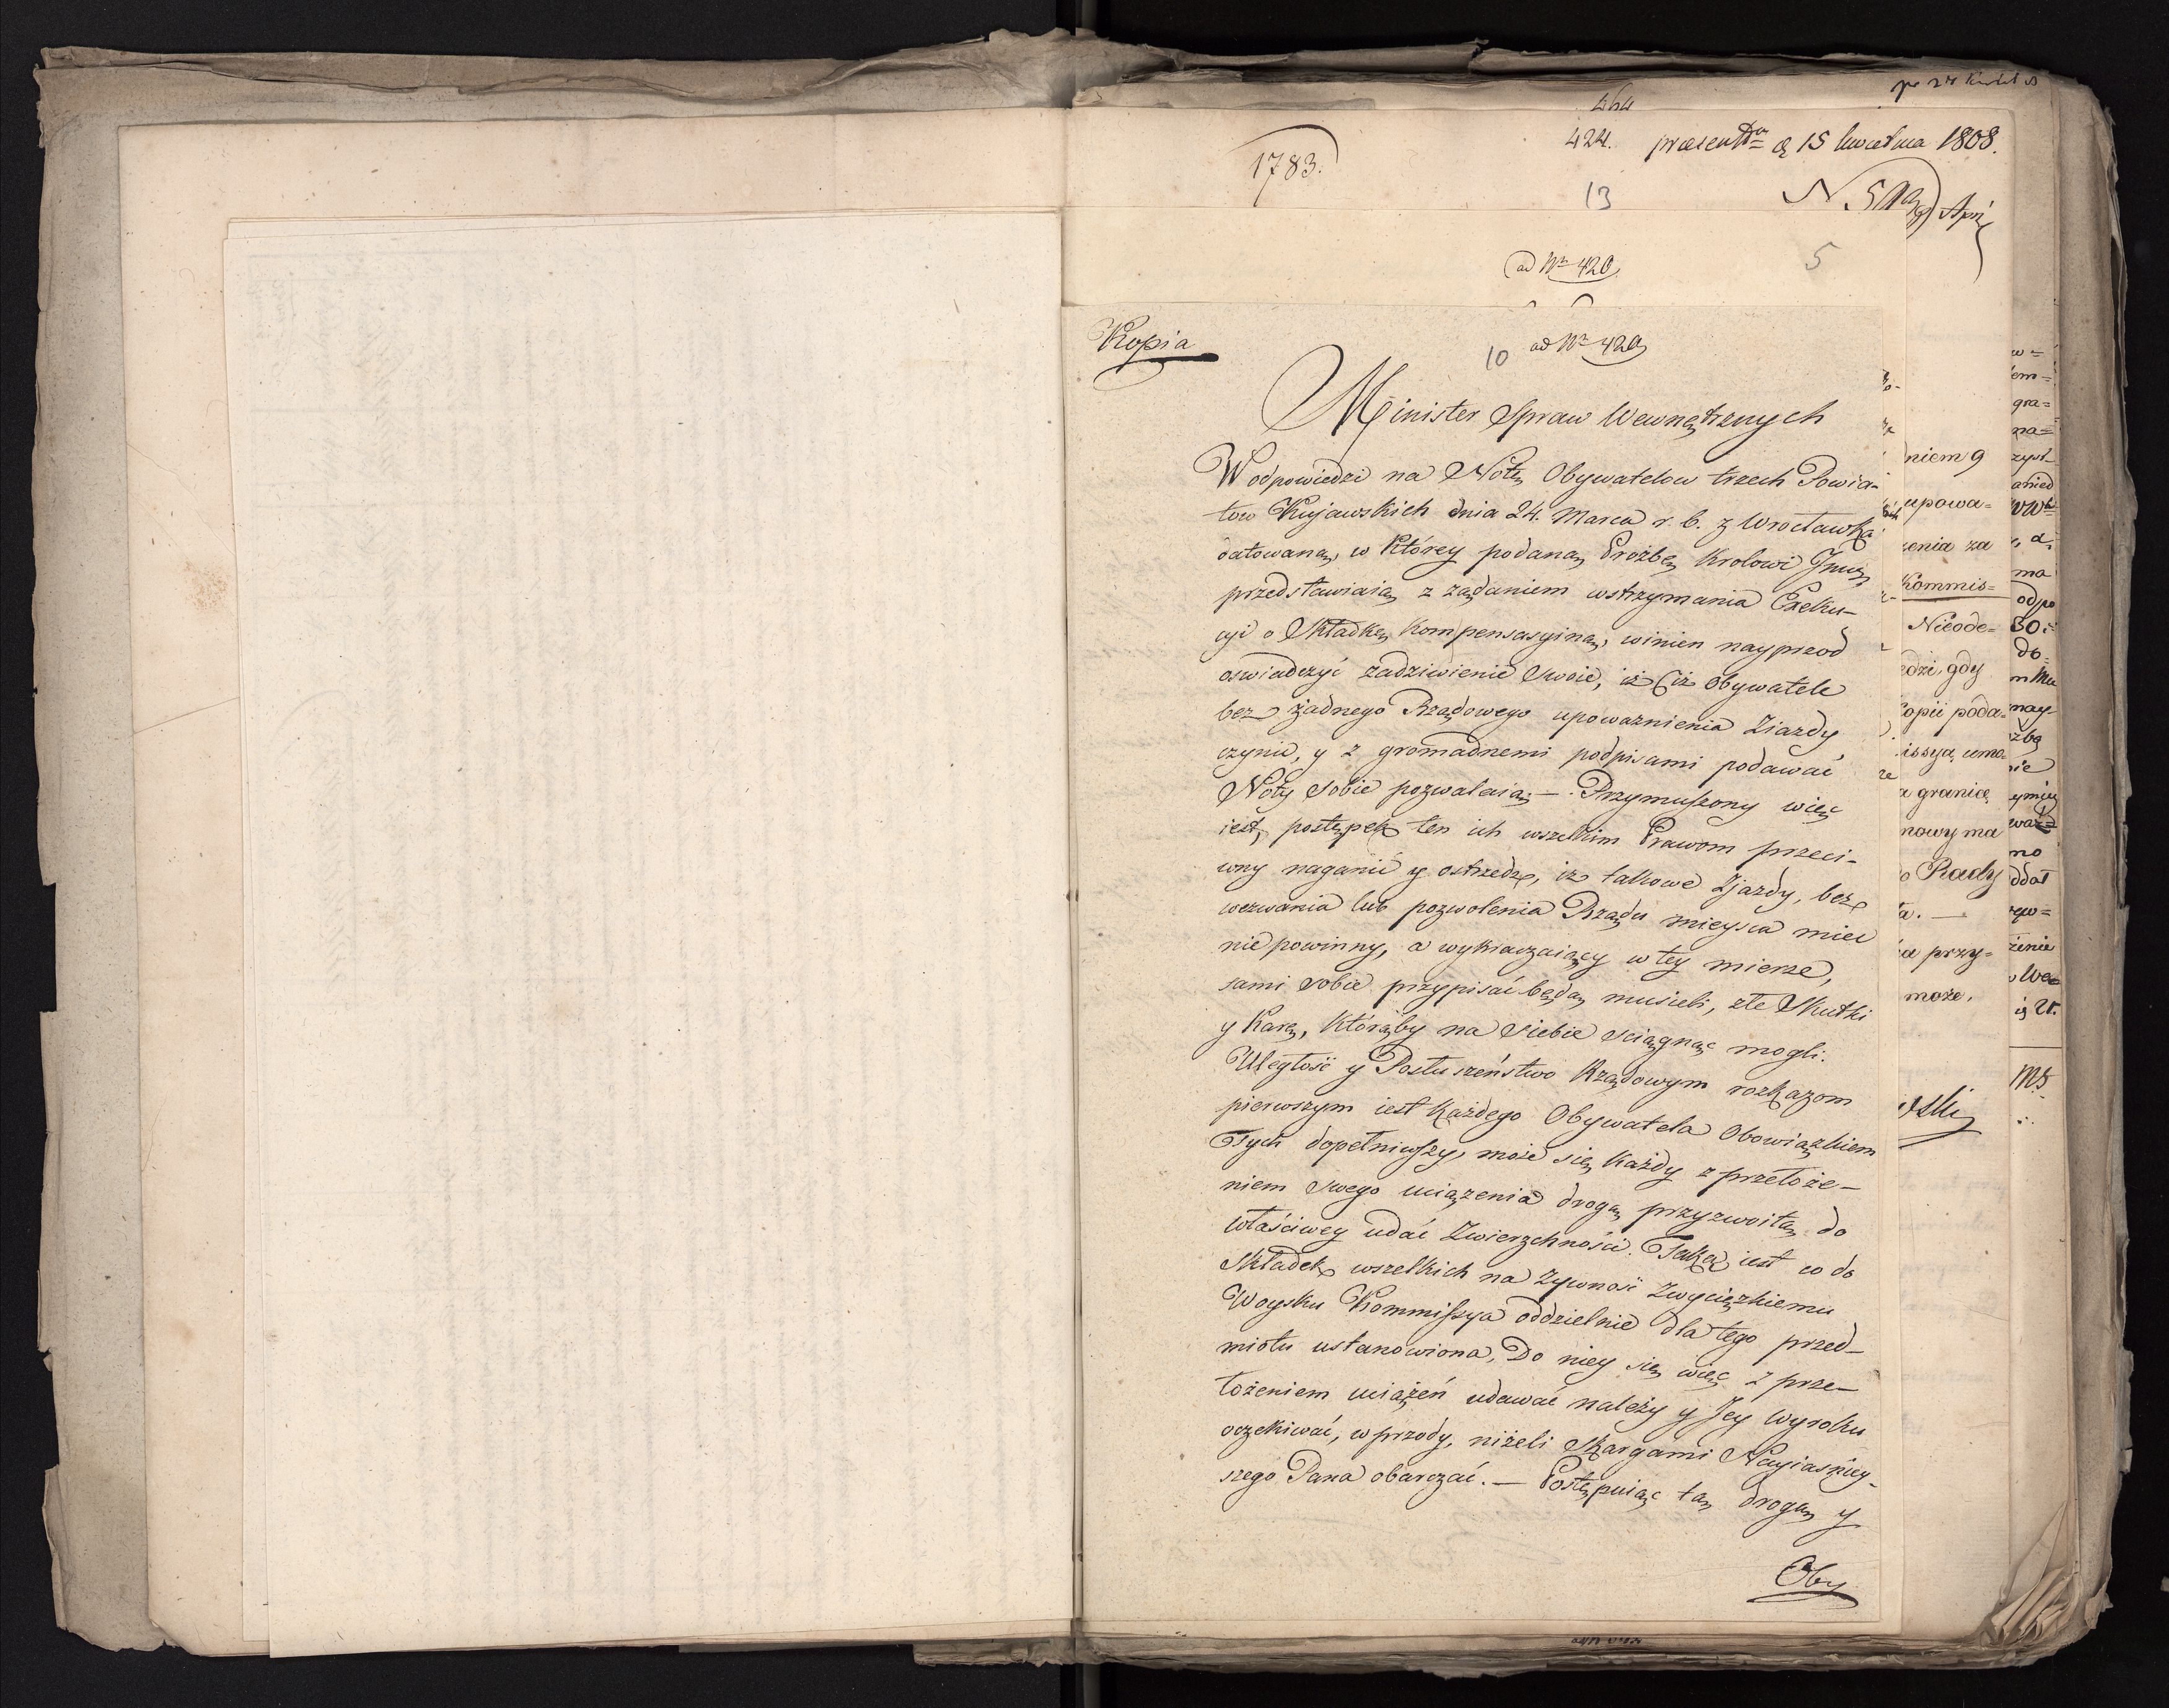 464
424. praesentm d 15 kwietnia 1808.
1783.
13
ad Nr 420
5
Kopia
10 ad Nr 420
Minister Spraw Wewnętrznych
W odpowiedzi na Notę Obywatelow trzech Powia-
tow Kujawskich dnia 24. Marca r. b. z Wrocławka
datowaną, w którey podaną Prozbę Krolowi Jmci,
przedstawiaią z ządaniem wstrzymania Exeku-
cyi o Składkę kompensacyiną, winien nayprzod
oswiadczyć zadziwienie swoie, iż Ciż Obywatele
bez żadnego Rządowego upoważnienia Ziazdy
czynić, y z gromadnemi podpisami podawać
Noty sobie pozwalaią. — Przymuszony więc
iest, postępek ten ich wszelkim Prawom przeci-
wny naganić y ostrzedz, iż takowe Zjazdy, bez
wezwania lub pozwolenia Rządu mieysca mieć
nie powinny, a wykraczaiący w tey mierze,
sami sobie przypisać będą musieli, złe Skutki
y Karę, którąby na siebie sciągnąć mogli.
Uległość y Posłuszeństwo Rządowym rozkazom
pierwszym iest każdego Obywatela Obowiązkiem
Tych dopełniwszy, może się każdy z przełoże-
niem swego uciązenia drogą przyzwoitą do
właściwey udać Zwierzchności. Taką iest co do
Składek wszelkich na Zywność Zwycięzkiemu
Woysku Kommissya oddzielnie dla tego przed-
miotu ustanowiona, Do niey się więc z prze-
łożeniem uciążeń udawać należy y Jey Wyroku
oczekiwać, wprzody, niżeli Skargami Nayiasniey-
szego Pana obarczać. — Postępuiąc tą drogą y
Oby
dniem 9
upowa=
zenia za
Kommis=
Nieode=
edzi, gdy
Copii poda=
issyą umo=
a granicę
nowy ma
o Rady
ta. —
ia przy=
może.
wski
w=
em=
gra=
na=
zyst-
ma
odpo
do=
may-
żbę
nie
mo
ddał
żenie